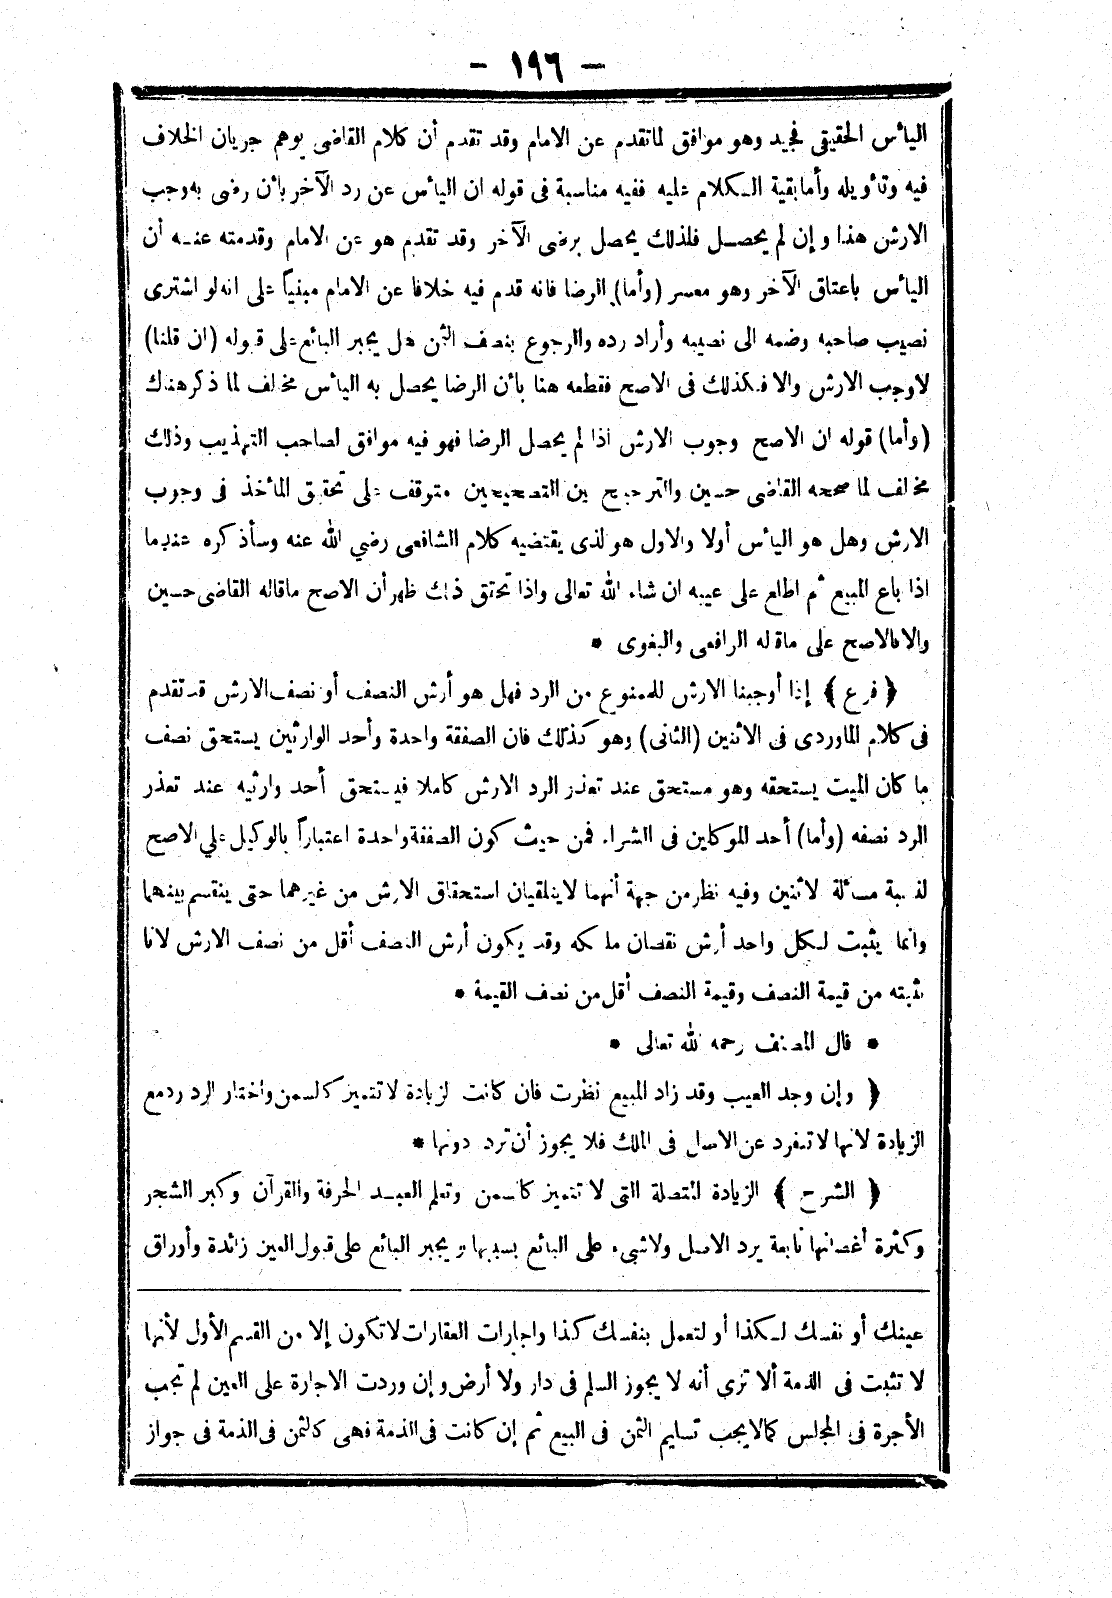 - ١٩٦ -
اليأس الحقيقي فجيد وهو موافق لماتقدم عن الامام وقد تقدم أن كلام القاضي يوهم جريان الخلاف
فيه وتأويله وأمابقية الكلام عليه ففيه مناسبة فى قوله ان اليأس عن رد الآخر بأن رضى به وجب
الارش هذا وإن لم يحصل فلذلك يحصل برضى الآخر وقد تقدم هو عن الامام وقدمته عنه أن
اليأس باعتاق الآخر وهو معسر (وأما) الرضا فانه قدم فيه خلافا عن الامام مبنياً على انه لو اشترى
نصيب صاحبه وضمه الى نصيبه وأراد رده والرجوع بنصف الثمن هل يجبر البائع على قبوله (ان قلنا)
لاوجب الارش والا فكذلك فى الاصح فقطعه هنا بأن الرضا يحصل به اليأس مخالف لما ذكرهناك
(وأما) قوله ان الاصح وجوب الارش اذا لم يحصل الرضا فهو فيه موافق لصاحب التهذيب وذلك
مخالف لما صححه القاضى حسين والترجيح بين التصحيحين متوقف على تحقيق المأخذ فى وجوب
الارش وهل هو اليأس أولا والاول هو لذى يقتضيه كلام الشافعى رضي الله عنه وسأذكره عندما
اذا باع المبيع ثم اطلع على عيبه ان شاء الله تعالى واذا تحقق ذلك ظهرأن الاصح ماقاله القاضى حسين
والا فالاصح على ماقاله الرافعى والبغوى *
﴿ فرع ﴾ إذا أوجبنا الارش للممنوع من الرد فهل هو أرش النصف أو نصف الارش قد تقدم
فى كلام الماوردى فى الاثنين (الثانى) وهو كذلك فان الصفقة واحدة وأحد الوارثين يستحق نصف
ما كان الميت يستحقه وهو مستحق عند تعذر الرد الارش كاملا فيستحق أحد وارثيه عند تعذر
الرد نصفه (وأما) أحد الموكلين فى الشراء فمن حيث كون الصفقة واحدة اعتباراً بالوكيل على الاصح
لشبة مسألة لاثنين وفيه نظر من جهة أنهما لايتلقيان استحقاق الارش من غيرهما حتى ينقسم بينهما
وانما يثبت لكل واحد أرش نقصان ملكه وقد يكون أرش النصف أقل من نصف الارش لانا
نثبته من قيمة النصف وقيمة النصف أقل من نصف القيمة *
* قال المصنف رحمه لله تعالى *
﴿ وإن وجد العيب وقد زاد المبيع نظرت فان كانت لزيادة لا تتميز كالسمن واختار الرد رد مع
الزيادة لانها لا تنفرد عن الاصل فى الملك فلا يجوز أن ترد دونها *
﴿ الشرح ﴾ الزيادة المتصلة التى لا تتميز كالسمن وتعلم العبد الحرفة والقرآن وكبر الشجر
وكثرة أغصانها تابعة يرد الاصل ولاشىء على البائع بسببها ويجبر البائع على قبول العين زائدة وأوراق
عينك أو نفسك لكذا أو لتعمل بنفسك كذا واجارات العقارات لاتكون إلا من القسم الأول لأنها
لا تثبت فى الذمة ألا ترى أنه لا يجوز السلم فى دار ولا أرض وإن وردت الاجارة على العين لم تجب
الأجرة فى المجلس كمالا يجب تسليم الثمن فى البيع ثم إن كانت فى الذمة فهى كالثمن فى الذمة فى جواز